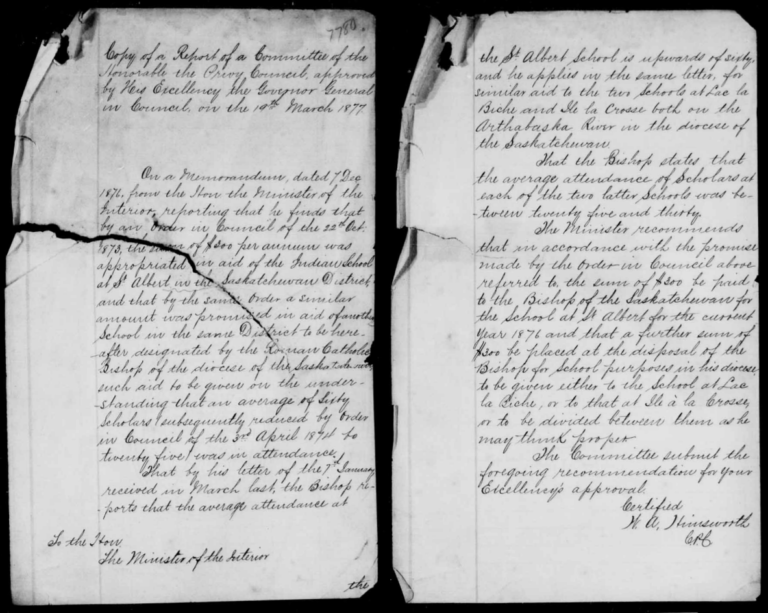 7780
Copy of a Report of a Committee of the
Honorable the Privy Council, approved
by His Excellency the Governor General
in Council, on the 19th March 1877.
On a Memorandum, dated 7 Dec
1876, from the Hon the Minister of the
Interior, reporting that he finds that
by an Order in Council of the 22nd Oct.
1873, the sum of $300 per annum was
appropriated in aid of the Indian School
at St Albert in the Saskatchewan District
and that by the same Order a similar
amount was promised in aid of another
School in the same District to be here-
after designated by the Roman Catholic
Bishop of the diocese of the Saskatchewan
such aid to be given on the under-
-standing that an average of Sixty
Scholars (subsequently reduced by Order
in Council of the 3rd April 1874 to
twenty five) was in attendance.
That by his letter of the 7th January
received in March last, the Bishop re-
-ports that the average attendance at
To the Hon.
The Minister of the Interior
the
the St Albert School is upwards of sixty,
and he applies in the same letter, for
similar aid to the two Schools at Lac la
Biche and Ile la Crosse both on the
Arthabaska River in the diocese of
the Saskatchewan.
That the Bishop states that
the average attendance of Scholars at
each of the two latter Schools was be-
-tween twenty five and thirty.
The Minister recommends
that in accordance with the promise
made by the Order in Council above
referred to the sum of $300 be paid
to the Bishop of the Saskatchewan for
the School at St Albert for the current
Year 1876 and that a further sum of
$300 be placed at the disposal of the
Bishop for School purposes in his diocese
to be given either to the School at Lac
la Biche, or to that at Ile à la Crosse,
or to be divided between them as he
may think proper
The Committee submit the
foregoing recommendation for Your
Excellency's approval.
Certified
W. A. Himsworth
C.P.C